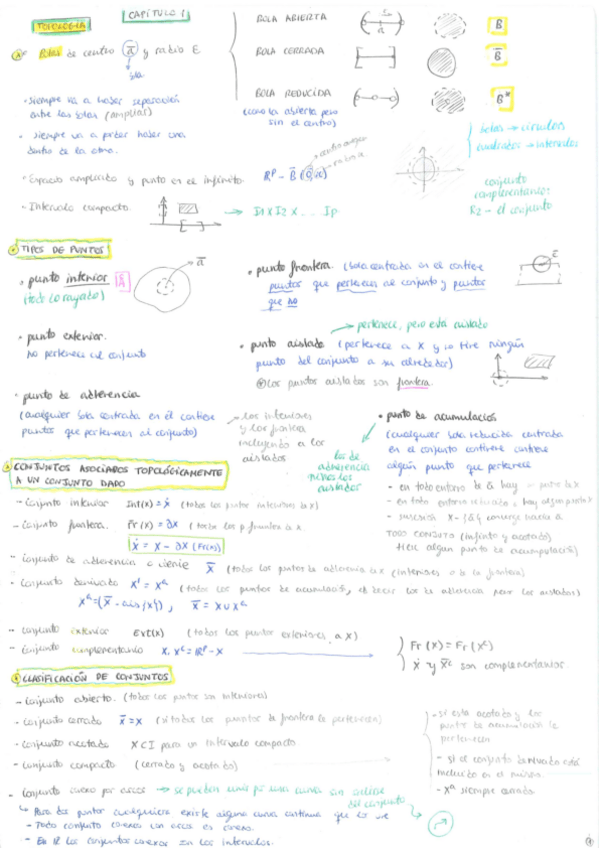 CAPÍTULO 1
TOPOLOGÍA
Bolas de centro a y radio ε
bola
BOLA ABIERTA
B
BOLA CERRADA
B
BOLA REDUCIDA
(como la abierta pero
sin el centro)
B*
· Siempre va a haber separación
entre las bolas (amplias)
· Siempre va a poder haber una
dentro de la otra.
bolas → círculos
cuadrados → intervalos
· Espacio ampliado y punto en el infinito.
conjunto
complementario:
R2 - el conjunto
· Intervalo compacto
→ I1 X I2 X ... Ip
TIPOS DE PUNTOS
· punto interior
(todo lo rayado)
a
· punto frontera. (bola centrada en él contiene
puntos que pertenecen al conjunto y puntos
que no
· punto exterior.
no pertenece al conjunto
→ pertenece, pero está aislado
· punto aislado (pertenece a X y no tiene ningún
punto del conjunto a su alrededor)
los puntos aislados son frontera.
· punto de adherencia
(cualquier bola centrada en él contiene
puntos que pertenecen al conjunto)
los interiores
y los frontera
incluyendo a los
aislados
· punto de acumulación
(cualquier bola reducida centrada
en el conjunto contiene
algún punto que pertenece)
los de
adherencia
menos los
aislados
- en todo entorno de a hay
- en todo entorno reducido, hay algún punto
TODO CONJUTO (infinito y acotado)
tiene algún punto de acumulación)
CONJUNTOS ASOCIADOS TOPOLÓGICAMENTE
A UN CONJUNTO DADO
- Conjunto interior Int(X) = Ẋ (todos los puntos interiores de X)
- Conjunto frontera. Fr(X) = ∂X (todos los p. frontera de X
Ẋ = X - ∂X (Fr(X))
- Conjunto de adherencia o cierre X̄ (todos los puntos de adherencia de X (interiores o de la frontera)
- Conjunto derivado X' = Xᵃ (todos los puntos de acumulación, es decir los de adherencia menos los aislados)
Xᵃ = (X̄ - ais(X)), X̄ = X ∪ Xᵃ
- Conjunto exterior Ext(X) (todos los puntos exteriores a X)
- Conjunto complementario X, Xᶜ = Rᴾ - X
Fr(X) = Fr(Xᶜ)
son complementarios
CLASIFICACIÓN DE CONJUNTOS
- Conjunto abierto. (todos los puntos son interiores)
- Conjunto cerrado X̄ = X (si todos los puntos de frontera le pertenecen)
- Conjunto acotado X ⊂ I para un intervalo compacto
- Conjunto compacto (cerrado y acotado)
- si esta acotado y los
puntos de acumulación le
pertenecen
- si el conjunto derivado está
incluido en el mismo.
- Xᵃ siempre cerrado
- Conjunto conexo por arcos → se pueden unir por una curva sin salirse
del conjunto
↳ Para dos puntos cualesquiera existe alguna curva continua que los une
- Todo conjunto conexo por arcos es conexo.
- En R los conjuntos conexos son los intervalos.
1